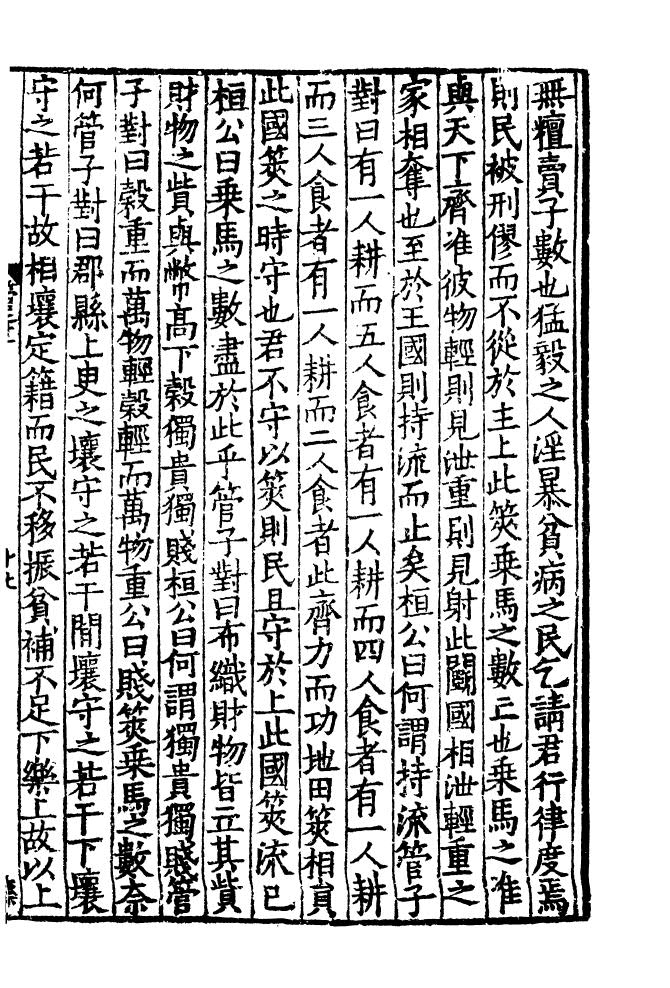 無𥼷賣子數也猛毅之人淫暴貧病之民乞請君行律度焉
則民被刑僇而不從於主上此筴乗馬之數亡也乗馬之准
與天下齊准彼物輕則見泄重則見射此鬬國相泄輕重之
家相奪也至於王國則持流而止矣桓公曰何謂持流管子
對曰有一人耕而五人食者有一人耕而四人食者有一人耕
而三人食者有一人耕而二人食者此齊力而功地田筴相貟
此國筴之時守也君不守以筴則民且守於上此國筴流已
桓公曰乗馬之數盡於此乎管子對曰布織財物皆立其貲
財物之貲與幣高下榖獨貴獨賤桓公曰何謂獨貴獨賤管
子對曰榖重而萬物輕榖輕而萬物重公曰賤筴乗馬之數奈
何管子對曰郡縣上臾之壤守之若干閒壤守之若干下壤
守之若干故相壤定籍而民不移振貧補不足下樂上故以上